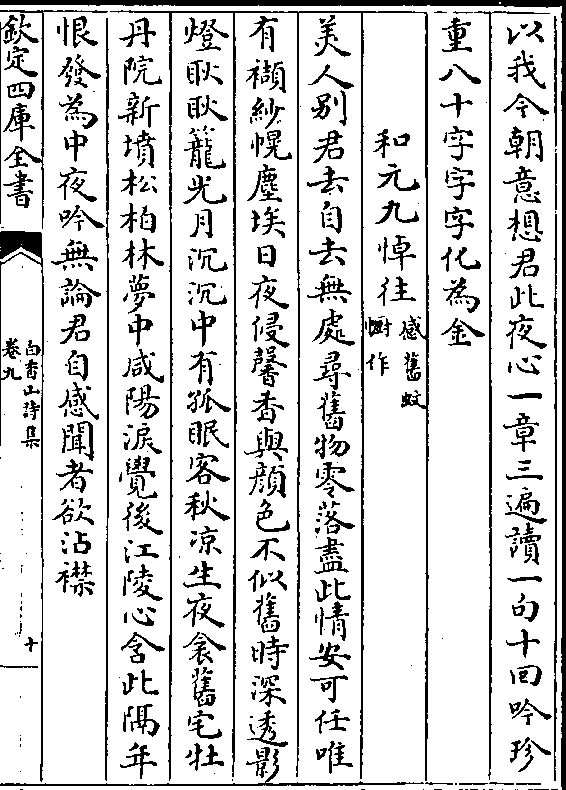 以我今朝意想君此夜心一章三遍讀一句十回吟珍
重八十字字字化為金
和元九悼往感舊蚊
㡡作
美人别君去自去無處尋舊物零落盡此情安可任唯
有襭紗幌塵埃日夜侵馨香與顔色不似舊時深透影
燈耿耿籠光月沉沉中有孤眠客秋凉生夜衾舊宅牡
丹院新墳松柏林夢中咸陽淚覺後江陵心含此隔年
恨發為中夜吟無論君自感聞者欲沾襟
欽定四庫全書
白香山詩集
卷九
十